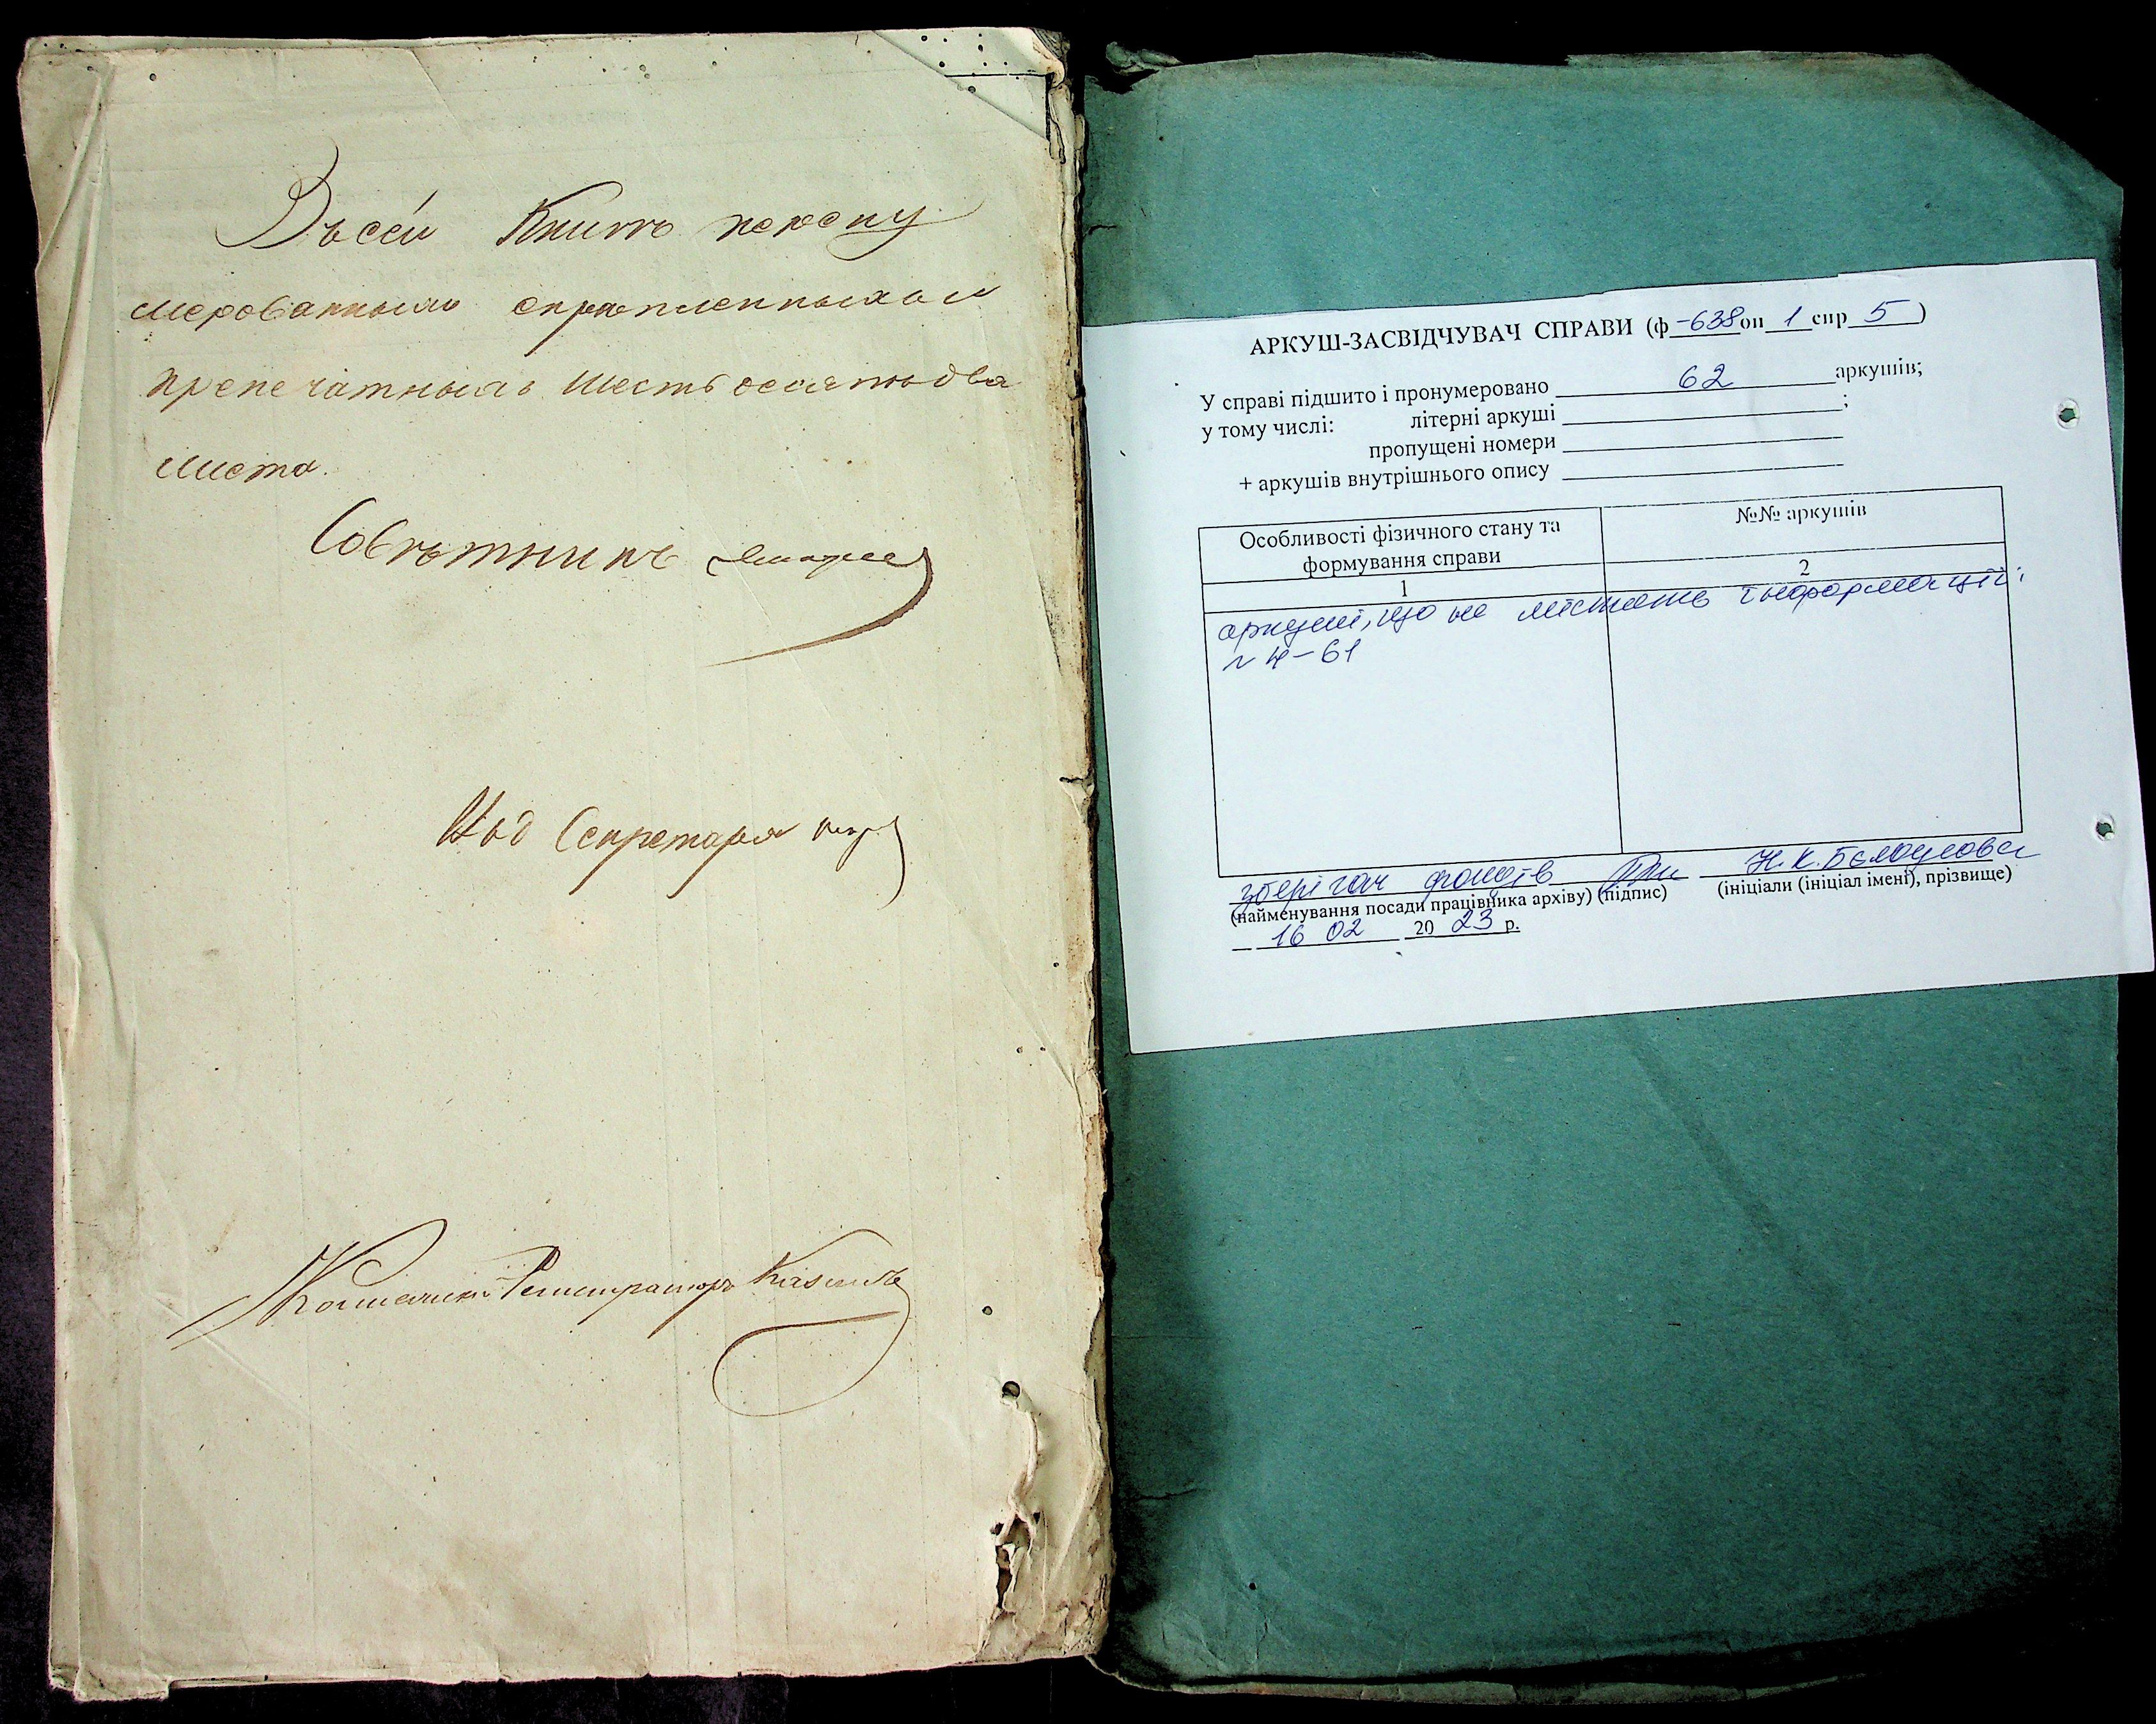 Въ сей Книгѣ перену
мерованныхъ скрѣпленныхъ и
припечатныхъ шестьдесятъ два
листа.
Совѣтникъ
Секретаря
Регистраторъ
АРКУШ-ЗАСВІДЧУВАЧ СПРАВИ (ф -638 оп 1 спр 5 )
У справі підшито і пронумеровано 62 аркушів;
у тому числі: літерні аркуші ;
пропущені номери
+ аркушів внутрішнього опису
Особливості фізичного стану та
формування справи
№№ аркушів
1
2
аркуші, що не містять інформації:
4-61
зберігач фондів Н.К. Белоусова
(найменування посади працівника архіву) (підпис) (ініціали (ініціал імені), прізвище)
16 02 20 23 р.